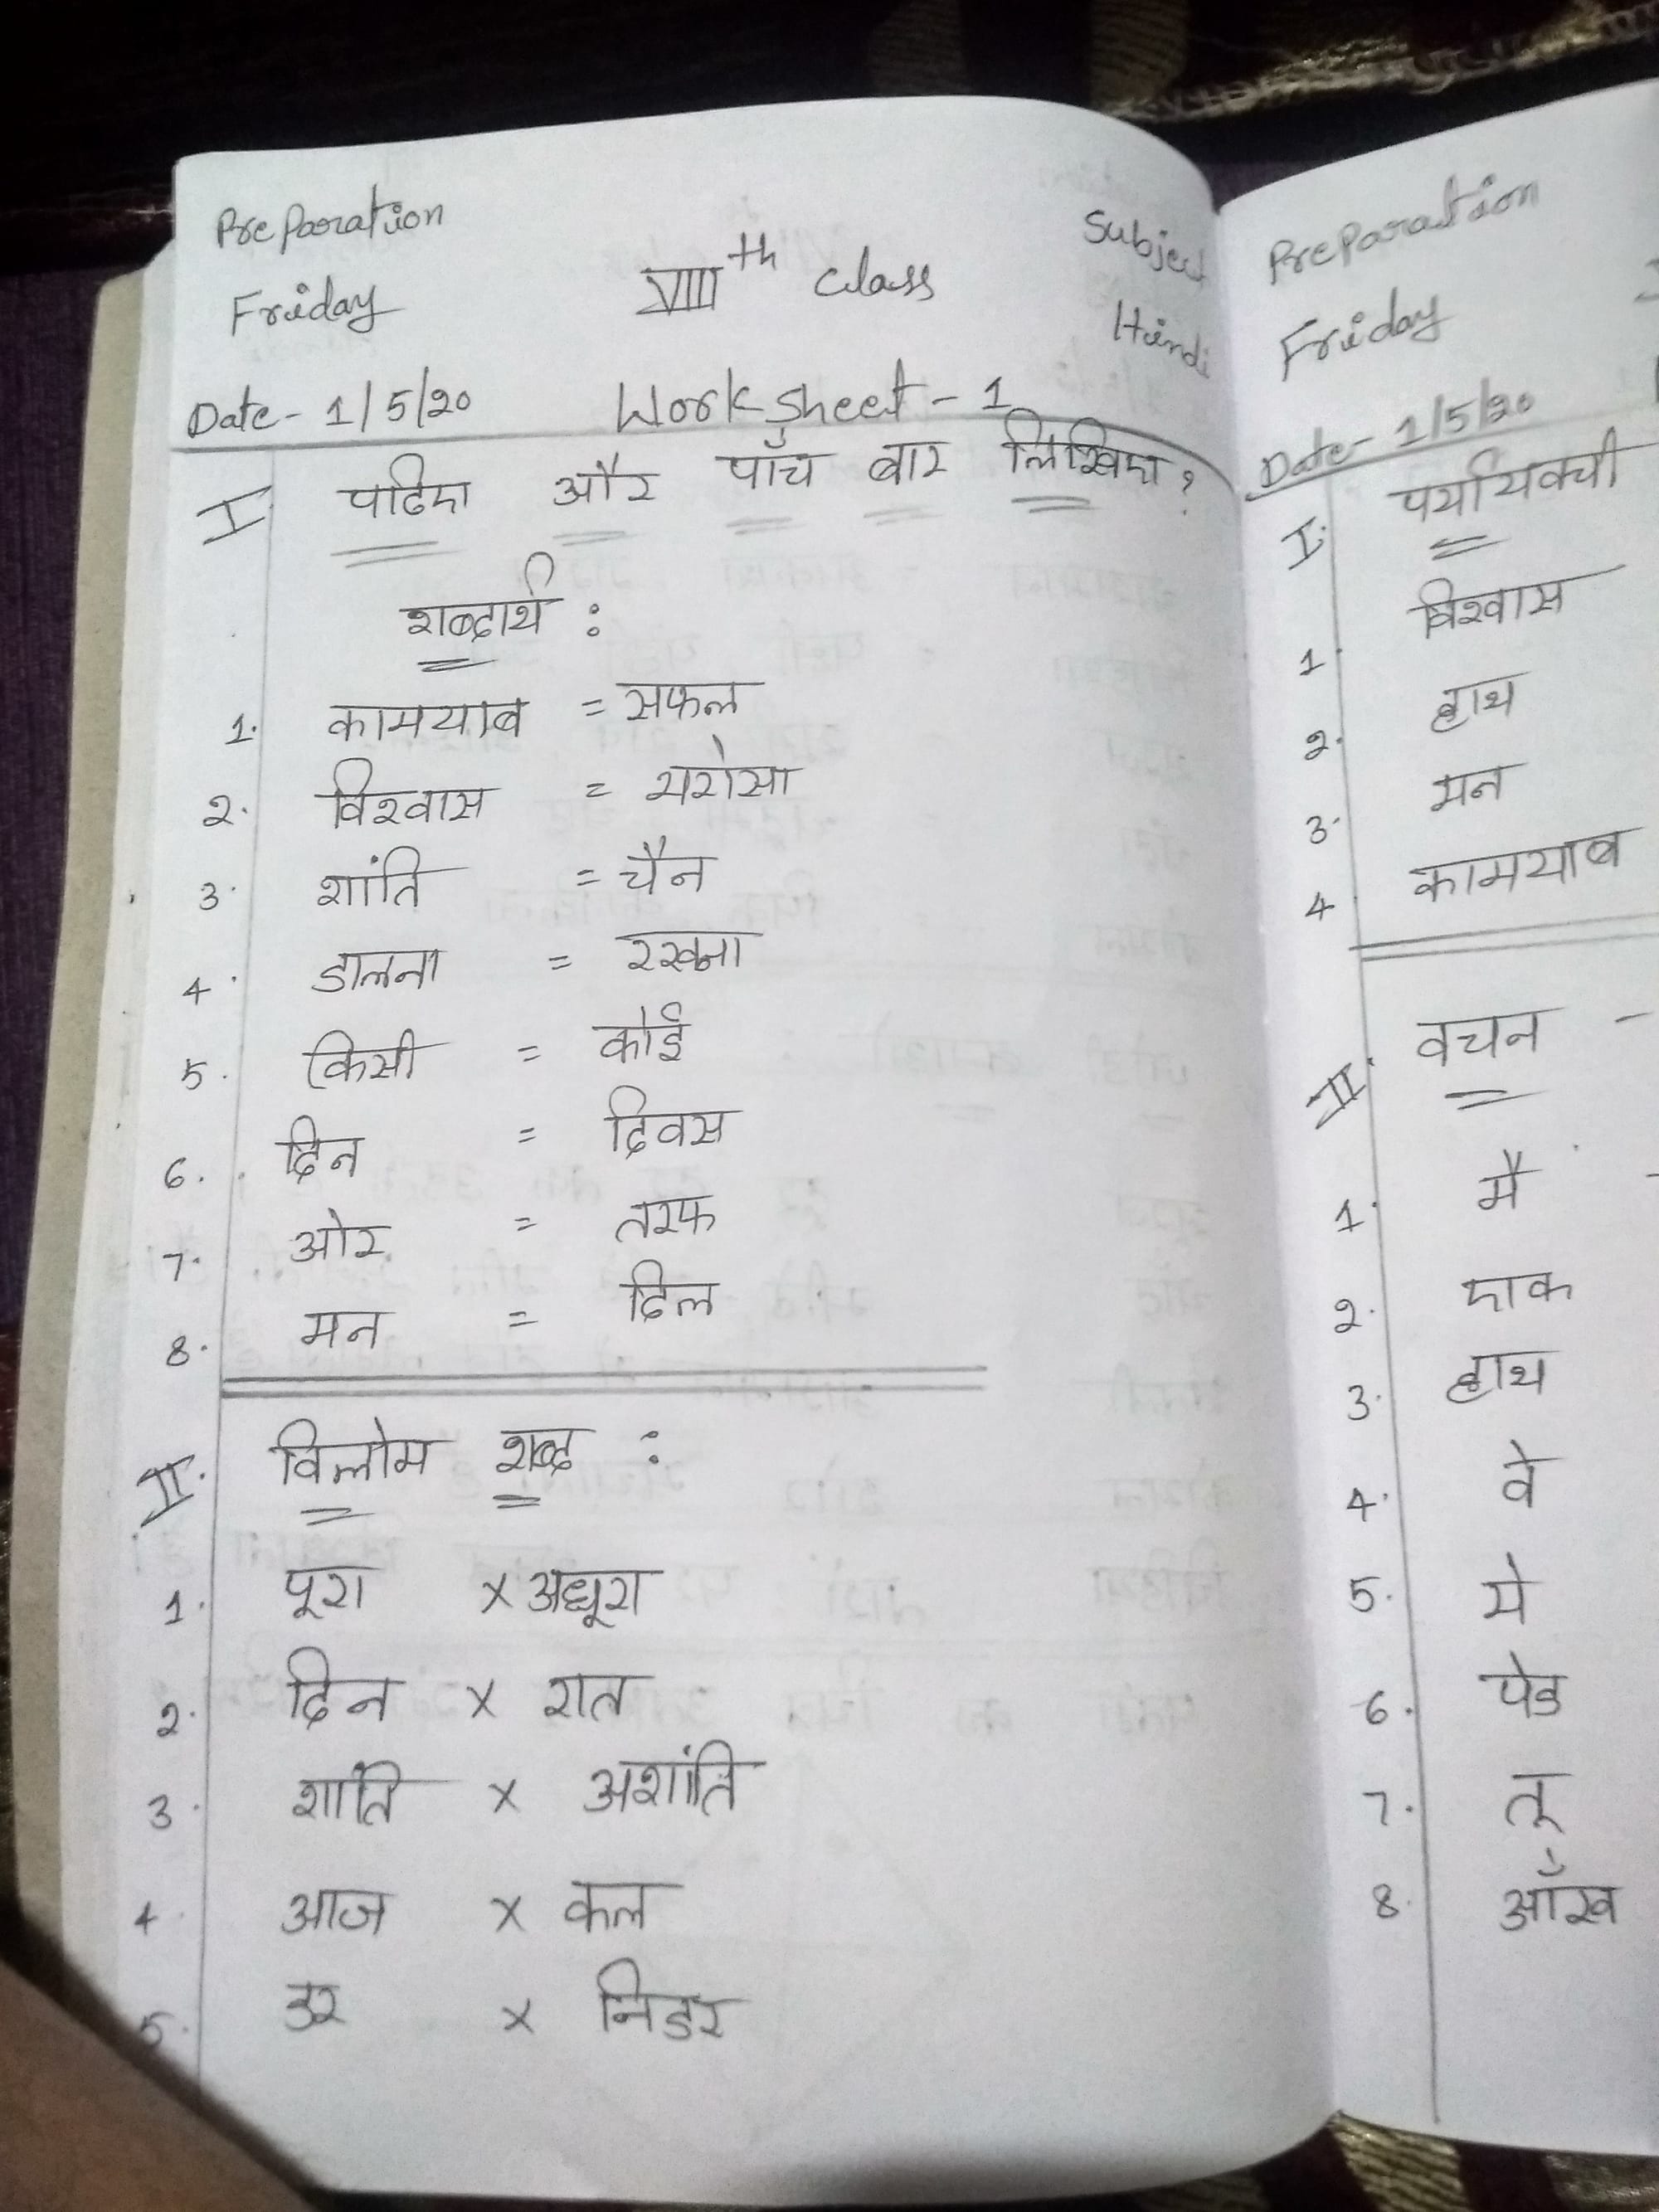 Preparation
Friday
VIIIth class
Subject
Hindi
Date- 1/5/20 Worksheet - 1
I पढिए और पाँच बार लिखिए?
शब्दार्थ :
1. कामयाब = सफल
2. विश्वास = भरोसा
3. शांति = चैन
4. डालना = रखना
5. किसी = कोई
6. दिन = दिवस
7. ओर = तरफ
8. मन = दिल
II. विलोम शब्द :
1. पूरा x अधूरा
2. दिन x रात
3. शांति x अशांति
4. आज x कल
5. डर x निडर
Preparation
Friday
Date- 1/5/20
I.
1. विश्वास
2. हाथ
3. मन
4. कामयाब
II. वचन -
1. मै
2. एक
3. हाथ
4. वे
5. ये
6. पेड
7. तू
8. आँख